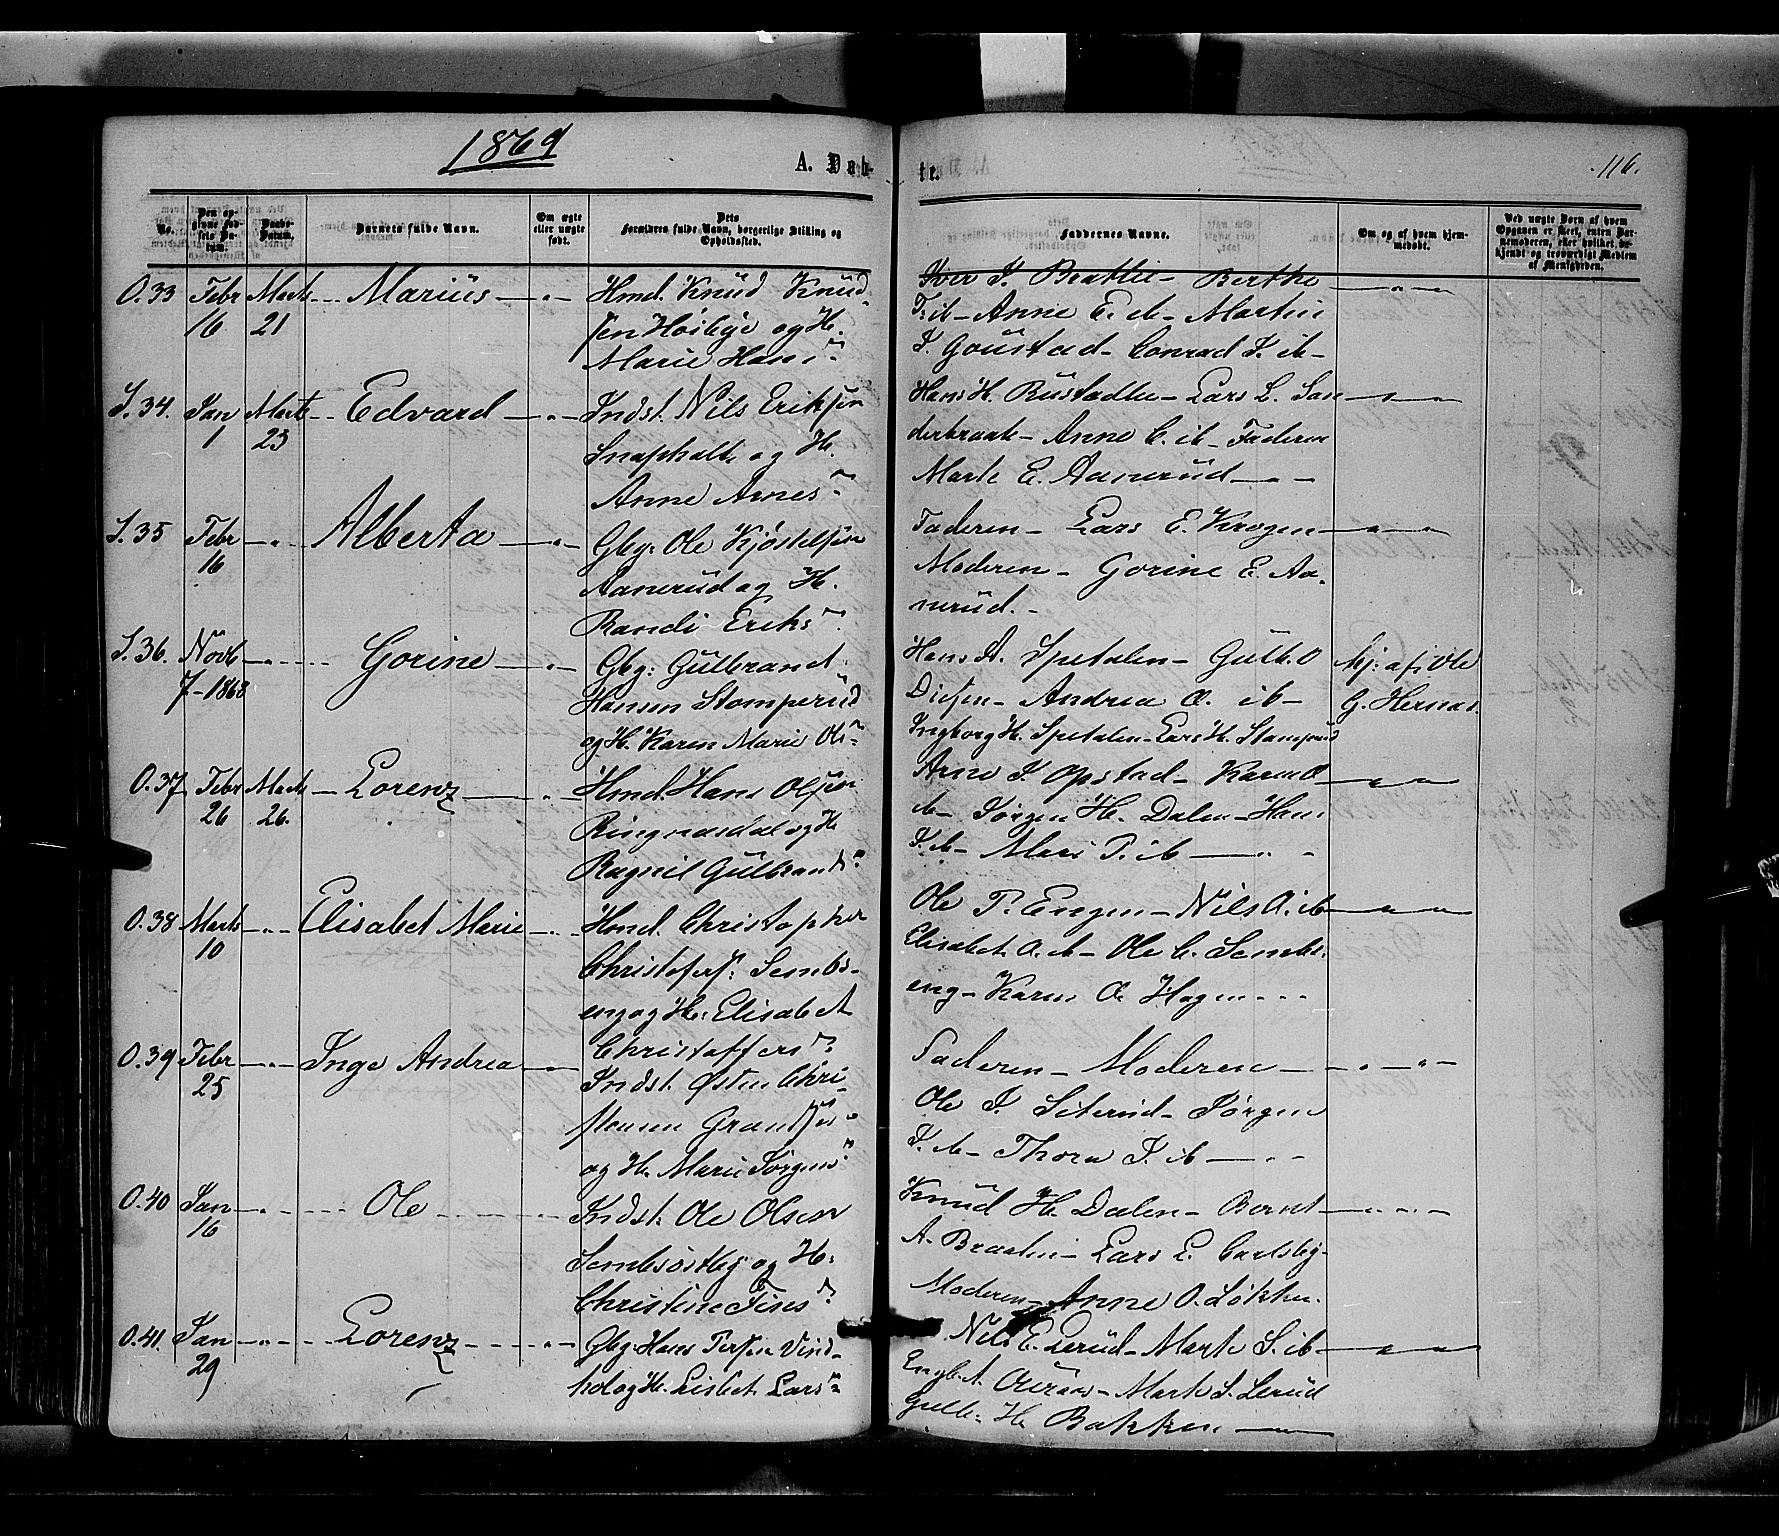 1869
A. Dåb-
te.
116.
No.
Den op-
givne Fød-
sels Da-
tum.
Daabs-
Datum.
Barnets fulde Navn.
Om ægte
eller uægte
født.
Dets
Forældres fulde Navn, borgerlige Stilling og
Opholdssted.
Faddernes Navne.
Om og af hvem hjem-
medøbt.
Ved uægte Børn af hvem
Opgaven er skeet, enten Bar-
nemoderen, eller hvilket be-
kjendt og troværdigt Medlem
af Menigheden.
O. 33 Febr 16 Marts 21 Marius
Hmd. Knud Knud-
sen Høibye og H.
Marie Hans
Iver J. Bratlie - Berthe
J. ib - Anne E. ib - Martin
J. Goustad - Conrad J. ib -
S. 34. Jan 1 Marts 23 Edvard
Indst. Nils Eriksen
og H.
Anne Arnes
Hans H. Rustadlie - Lars L. San
derbraate - Anne C. ib - Faderen
Marte E. Aanerud
S. 35 Febr 16 Alberta
Gbg: Ole Kjøstelsen
Aanerud og H.
Randi Eriks
Faderen - Lars E. Krogen
Moderen - Gorine E. Aa-
nerud. -
S. 36. Novb 7 - 1868 Gorine
Gbg: Gulbrand
Hansen Stomperud
og H. Karen Marie Ols
Hans A. Spetalen - Gulb. O
Diesen - Andrea O. ib -
Ingborg H. Spetalen - Lars H. Stomperud
hj: af: Ole
G. Hernæs.
O. 37 Febr 26 Marts 26. Lorenz
Hmd. Hans Olsen
Ringnæsdal og H
Ragnil Gulbrands
Arne J. Opstad - Karen O
ib - Jørgen H. Dalen - Hans
J. ib - Mari P. ib
O. 38 Marts 10 Elisabet Marie
Hmd. Christopher
Christofers: Sembs-
eng og H: Elisabet
Christoffers
Ole P. Engen - Nils O. ib
Elisabet O. ib - Ole C. Sembs.
eng - Karen O. Hagen
O. 39 Febr 25 Inge Andrea
Indst. Østen Chri-
stensen
og H. Marie Jørgens
Faderen - Moderen
Ole J. Seterud - Jørgen
J. ib - Thora J. ib
O. 40 Jan 16 Ole
Indst: Ole Olsen
Sembsøstby og H:
Christine Fins
Knud H. Dalen - Bernt
A. Braatlie - Lars L. Carlsby -
Moderen - Anne O. Løkken.
O. 41. Jan 29 Lorenz
Gbg: Hans Persen Vind-
hol og H. Lisbet Lars
Nils E. Lerud - Marte S. ib -
Engb. A. - Marte S. Lerud
Gulb: H. Bakken